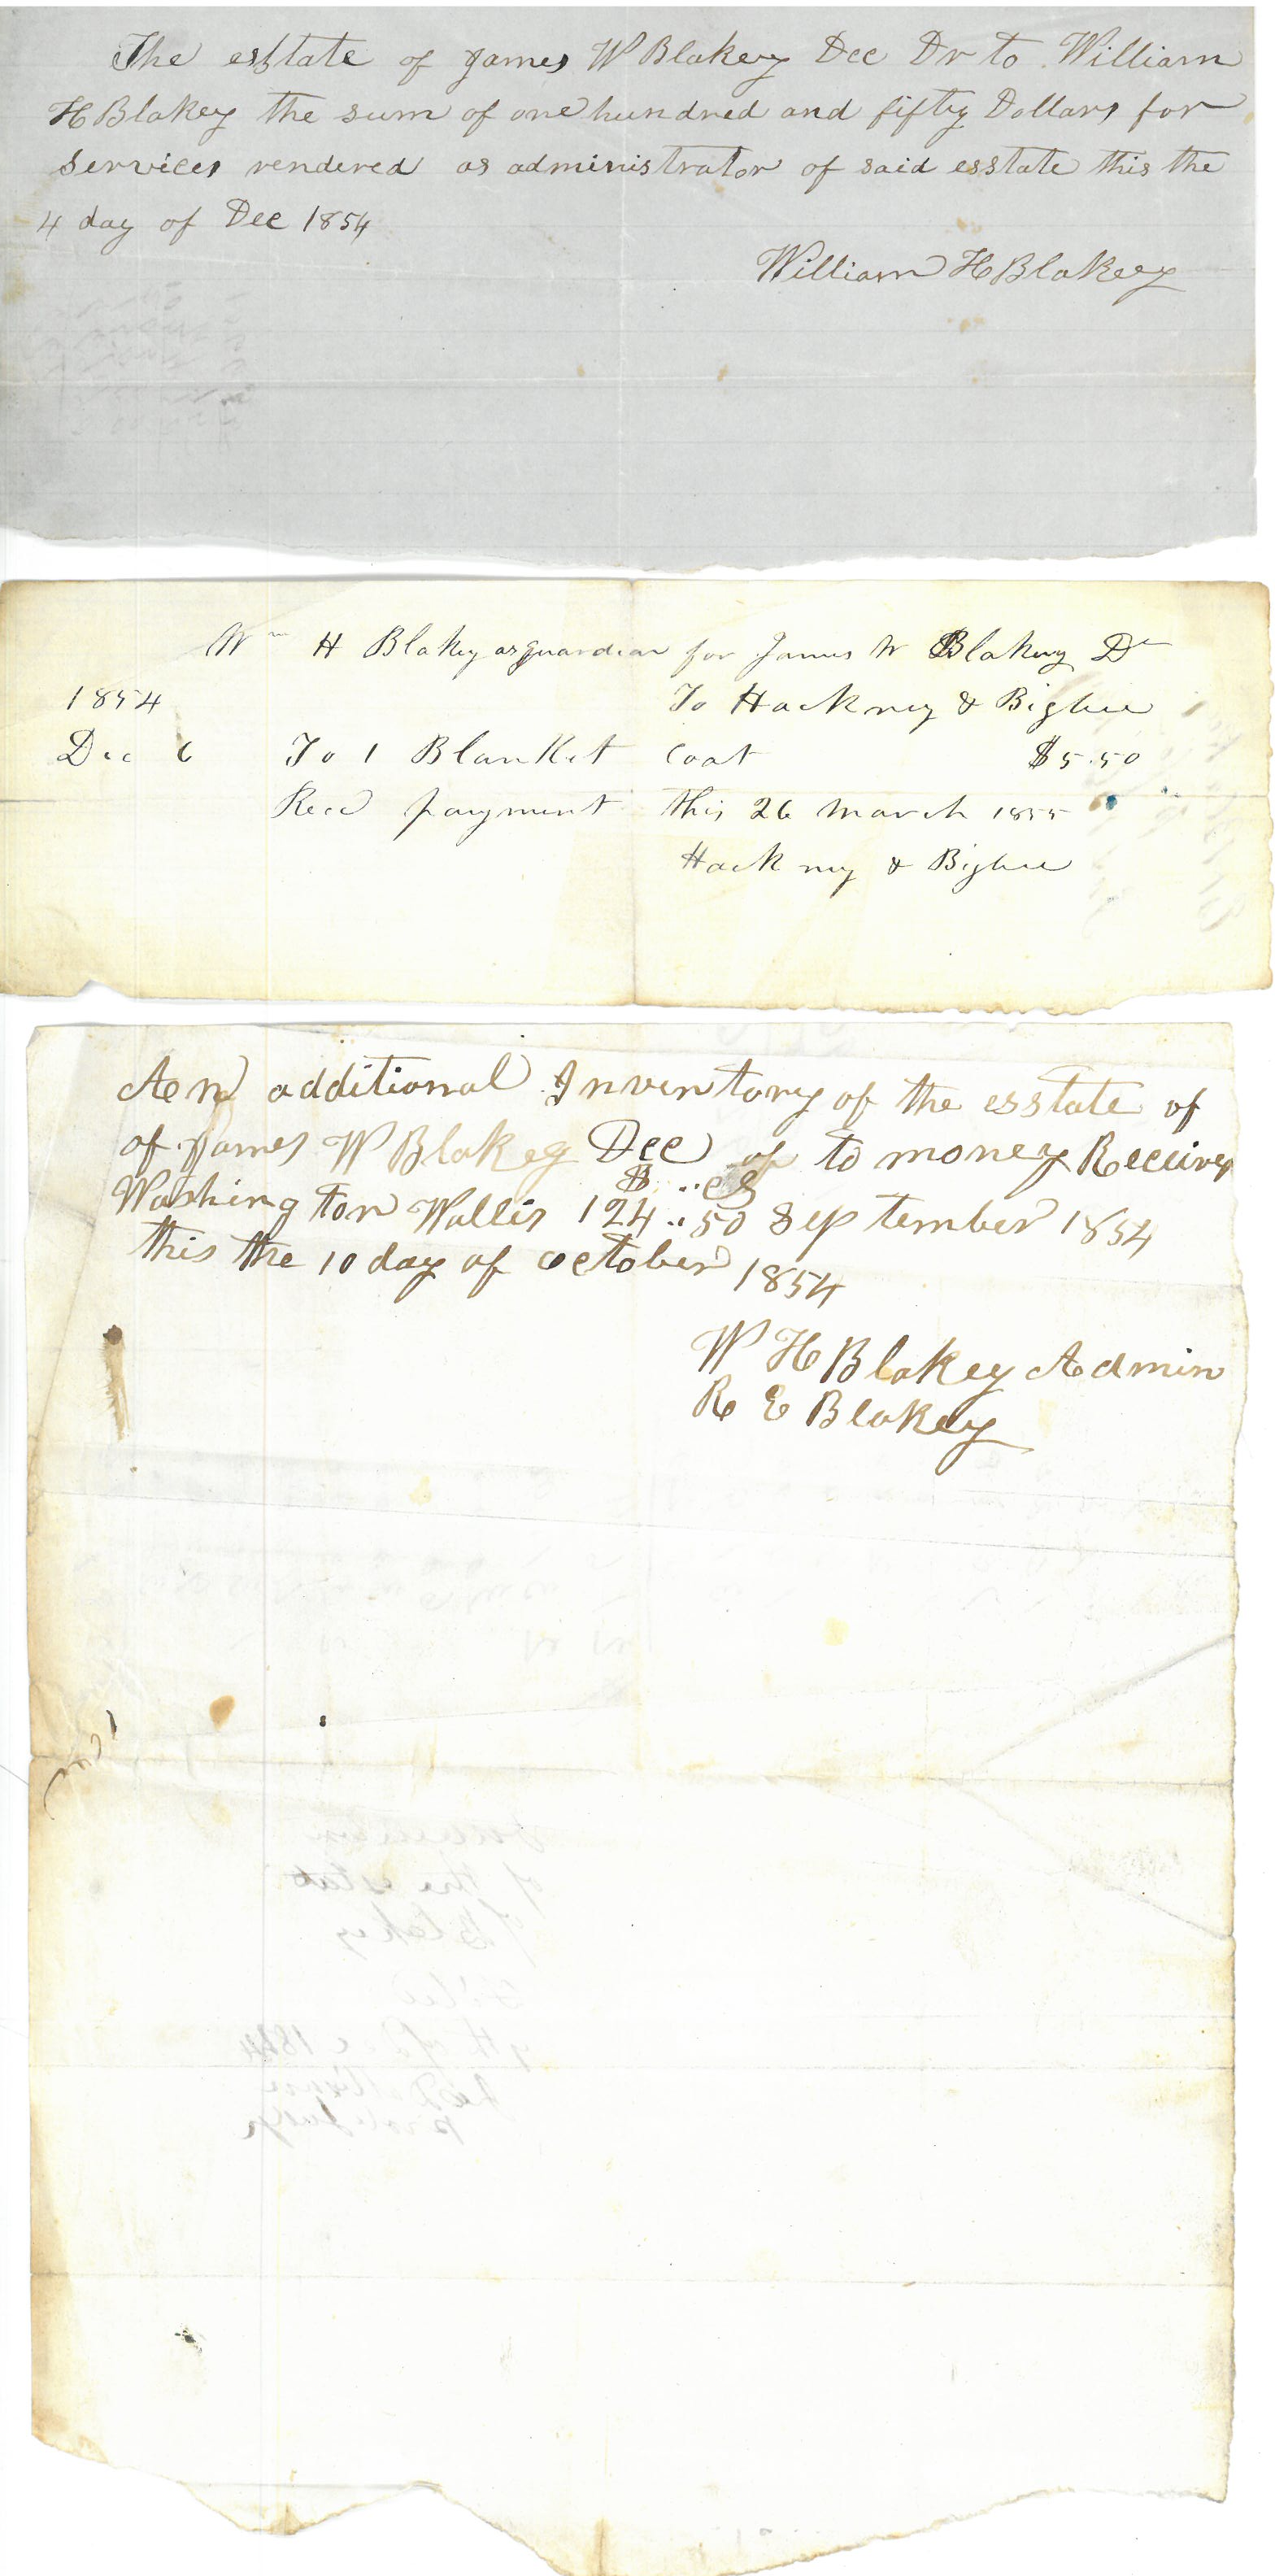 The esstate of James W Blakey Dec Dr to William
H Blakey the sum of one hundred and fifty Dollars for
services rendered as administrator of said esstate this the
4 day of Dec 1854
William H Blakey
Wm H Blakey as guardian for James W Blakey Dr
1854 To Hackney & Bigbee
Dec 6 To 1 Blanket Coat $5.50
Recd payment this 26 March 1855
Hackney & Bigbee
An additional Inventory of the esstate of
of James W Blakey Dec of to money Receivd
$ cts
Washington Wallis 124..50 September 1854
this the 10 day of october 1854
W H Blakey Admin
R E Blakey